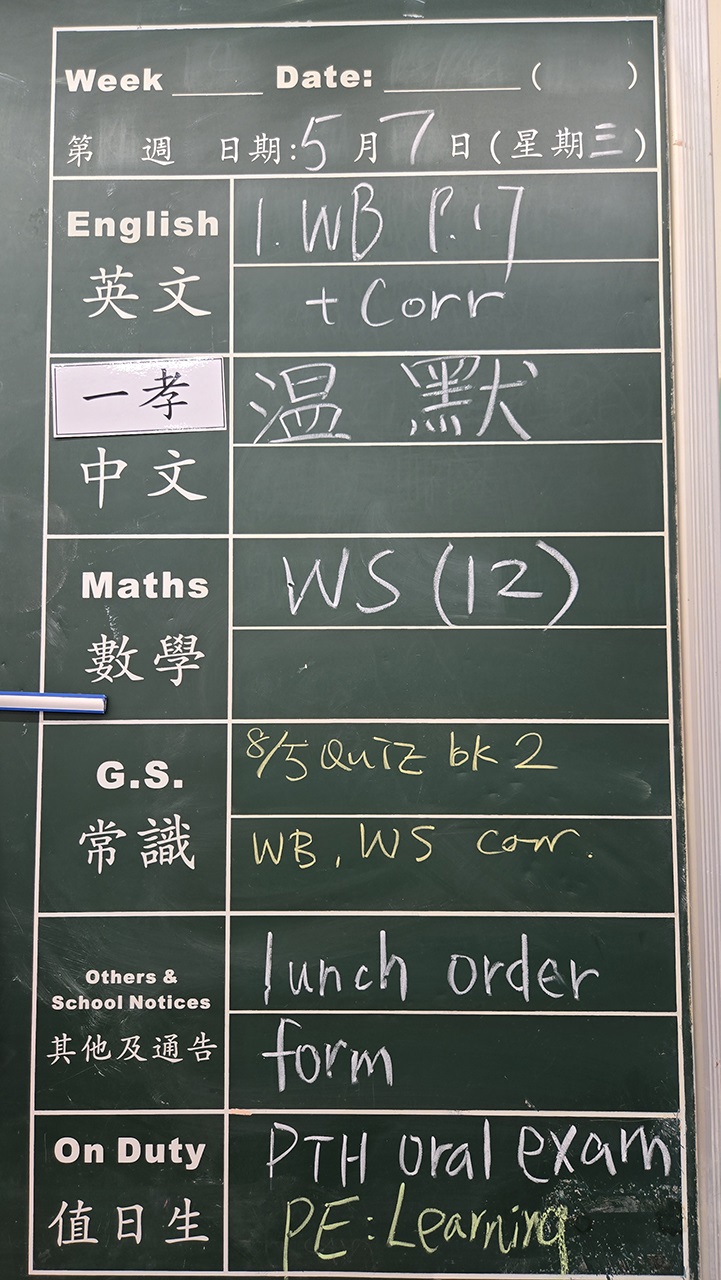 Week ____ Date: ______ ( )
第 週 日期:5月7日(星期三)
English 1. WB P.17
英文 + Corr
一孝 温 默
中文
Maths WS (12)
數學
G.S. 8/5 Quiz bk 2
常識 WB, WS corr.
Others & lunch order
School Notices
其他及通告 form
On Duty PTH oral exam
值日生 PE: Learning